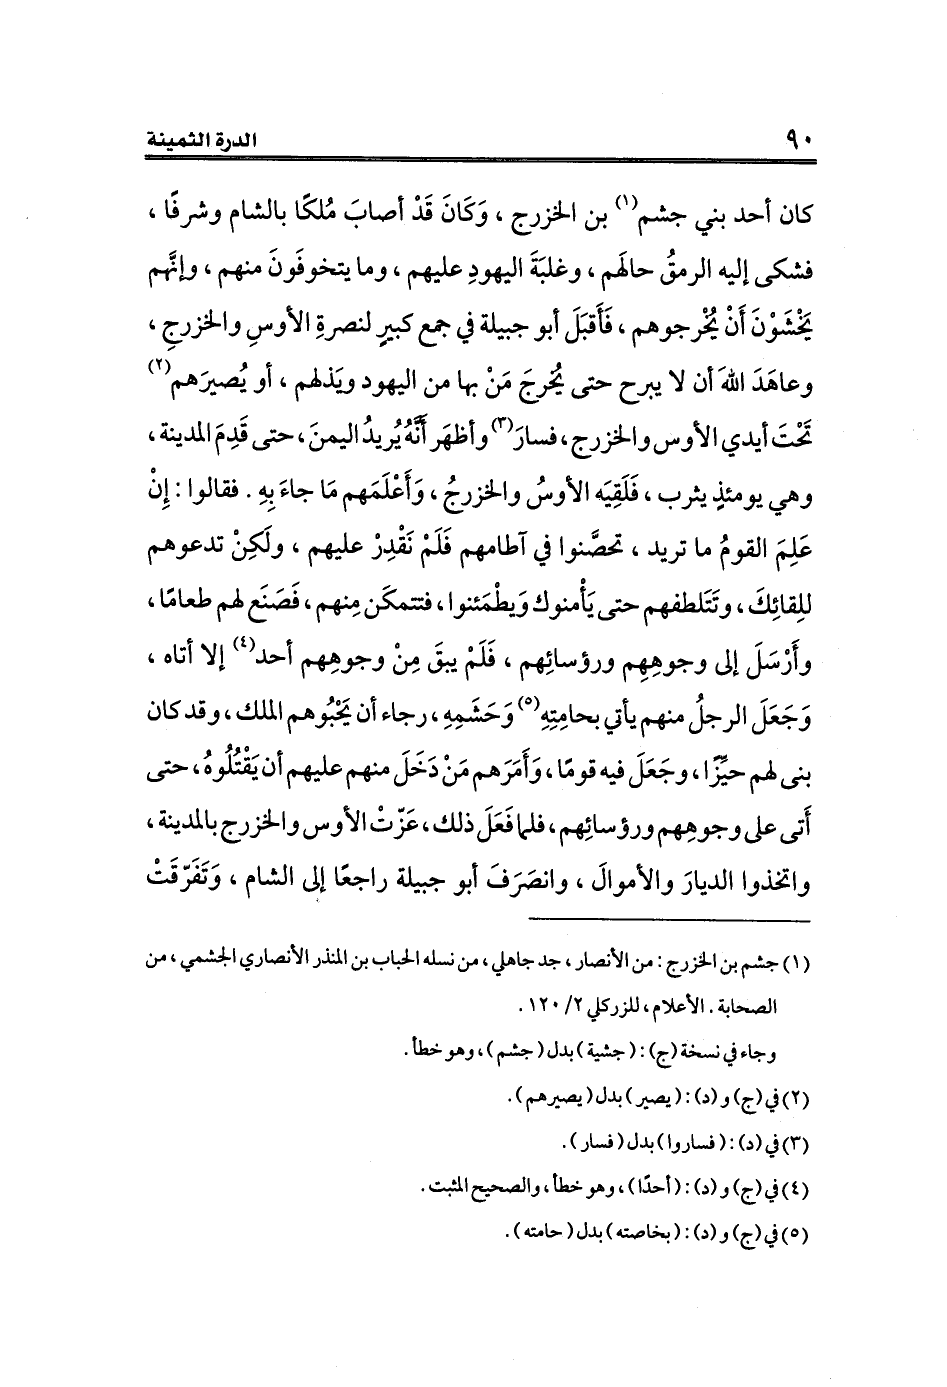 ٩٠ الدرة الثمينة
كان أحد بني جشم(١) بن الخزرج ، وَكَانَ قَدْ أصابَ مُلكًا بالشام وشرفًا ،
فشكى إليه الرمقُ حالهَم ، وغلبَةَ اليهودِ عليهم ، وما يتخوفَونَ منهم ، وإنَّهم
يَخْشَوْنَ أَنْ يُخْرجوهم ، فَأَقبَلَ أبو جبيلة في جمع كبيرٍ لنصرةِ الأوسِ والخزرجِ ،
وعاهَدَ اللهَ أن لا يبرح حتى يُخرجَ مَنْ بها من اليهود ويَذلهم ، أو يُصيرَهم(٢)
تَحْتَ أيدي الأوس والخزرج، فسارَ(٣) وأظهَر أَنَّهُ يُريدُ اليمنَ، حتى قَدِمَ المدينة،
وهي يومئذٍ يثرب ، فَلَقِيَه الأوسُ والخزرجُ ، وَأَعْلَمَهم مَا جاءَ بِهِ . فقالوا : إِنْ
عَلِمَ القومُ ما تريد ، تحصَّنوا في آطامهم فَلَمْ نَقْدِرْ عليهم ، ولَكِنْ تدعوهم
للِقائِكَ ، وتَتَلطفهم حتى يَأْمنوك وَيطْمَئنوا ، فتتمكَن مِنهم ، فَصَنَع لهم طعامًا،
وأَرْسَلَ إلى وجوهِهِم ورؤسائِهم ، فَلَمْ يبقَ مِنْ وجوهِهم أحد(٤) إلا أتاه ،
وَجَعَلَ الرجلُ منهم يأتي بحامِتِهِ(٥) وَحَشَمِهِ ، رجاء أن يَحْبُوهم الملك ، وقد كان
بنى لهم حيِّزًا ، وجعَلَ فيه قومًا ، وَأَمَرَهم مَنْ دَخَلَ منهم عليهم أن يَقْتُلُوهُ، حتى
أَتى على وجوهِهم ورؤسائِهم، فلما فَعَلَ ذلك، عَزّتْ الأوس والخزرج بالمدينة،
واتخذوا الديارَ والأموالَ ، وانصَرَفَ أبو جبيلة راجعًا إلى الشام ، وَتَفَرّقَتْ
(١) جشم بن الخزرج : من الأنصار ، جد جاهلي ، من نسله الحباب بن المنذر الأنصاري الجشمي ، من
الصحابة . الأعلام ، للزركلي ٢/ ١٢٠ .
وجاء في نسخة (ج) : (جشية) بدل (جشم) ، وهو خطأ .
(٢) في (ج) و (د) : (يصير) بدل (يصيرهم) .
(٣) في (د) : (فساروا) بدل (فسار) .
(٤) في (ج) و (د) : (أحدًا) ، وهو خطأ ، والصحيح المثبت .
(٥) في (ج) و (د) : (بخاصته) بدل (حامته) .